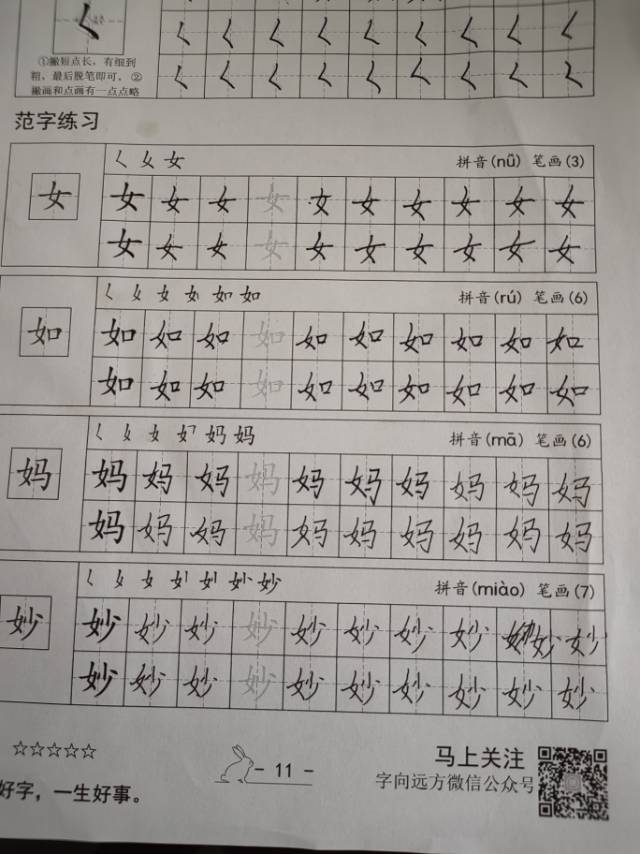 く
く く く く く く く く く
①撇短点长，有细到
粗，最后脱笔即可。②
撇画和点画有一点点略
く く く く く く く く く
范字练习
女
く 女 女 拼音(nǚ) 笔画(3)
女 女 女 女 女 女 女 女 女 女
女 女 女 女 女 女 女 女 女 女
如
拼音(rú) 笔画(6)
如 如 如 如 如 如 如 如 如 如
如 如 如 如 如 如 如 如 如 如
妈
拼音(mā) 笔画(6)
妈 妈 妈 妈 妈 妈 妈 妈 妈 妈
妈 妈 妈 妈 妈 妈 妈 妈 妈 妈
妙
拼音(miào) 笔画(7)
妙 妙 妙 妙 妙 妙 妙 妙 妙 妙
妙 妙 妙 妙 妙 妙 妙 妙 妙 妙
☆☆☆☆☆
好字，一生好事。
- 11 -
马上关注
字向远方微信公众号